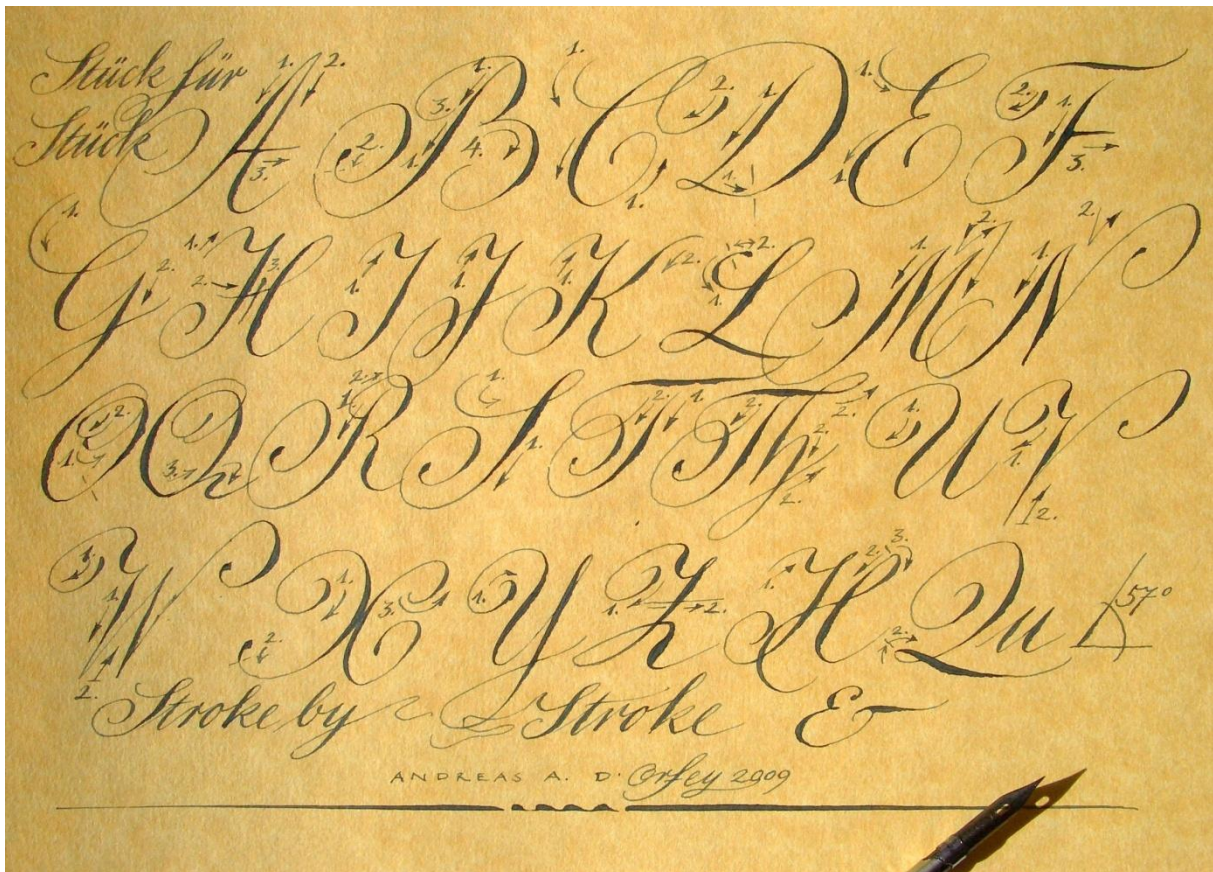 Stück für
Stück A B C D E F
G H I J K L M N
O Q R S T Th U V
W X Y Z H Qu 57°
Stroke by Stroke &
ANDREAS A. D. Orfey 2009